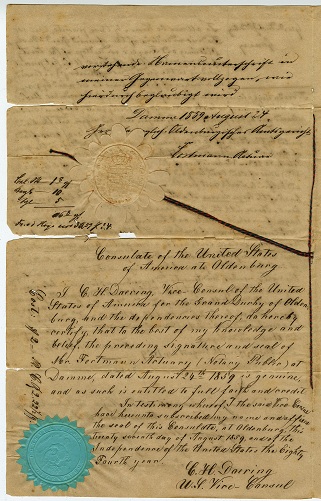 vorstehende Namensunterschrift in
meiner Gegenwart vollzogen, wie
hierdurch beglaubigt wird
Damme 1859 August 24.
Oldenburgisches Amtsgericht
Fortmann
Consulate of the United States
of America at Oldenburg
I C. H. Doering, Vice Consul of the United
States of America for the Grand Duchy of Olden
burg, and the dependencies thereof, do hereby
certify, that to the best of my knowledge and
belief, the preceding signature and seal of
Mr. Fortmann Actuary (Notary Public) at
Damme, dated August 24th 1859 is genuine,
and as such is entitled to full faith and credit.
In testimony whereof I the said Vice Consul
have hereunto subscribed my name and affixed
the seal of this Consulate, at Oldenburg, this
twenty seventh day of August 1859, and of the
Independence of the United States, the Eighty
Fourth year.
C. H. Doering
U.S. Vice-Consul